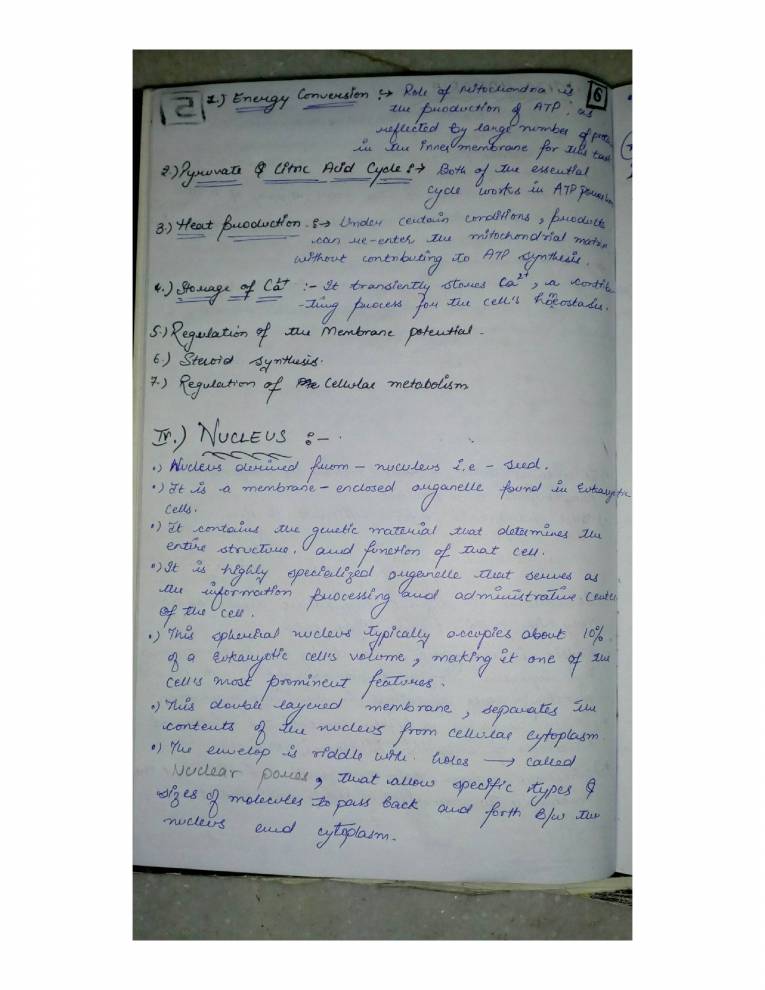 2 1.) Energy Conversion :→ Role of Mitochondria is 6
the production of ATP, as
reflected by large number of protein
in the inner membrane for this task
2.) Pyruvate & Citric Acid Cycle :→ Both of the essential
cycle works in ATP
3.) Heat production :→ Under certain conditions, products
can re-enter the mitochondrial matrix
without contributing to ATP synthesis.
4.) Storage of Ca2+ :- It transiently stores Ca2+, a contribu
-ting process for the cell's
5.) Regulation of the Membrane potential -
6.) Steroid synthesis.
7.) Regulation of Cellular metabolism
IV.) NUCLEUS :-
•) Nucleus derived from - nuculeus i.e - seed.
•) It is a membrane-enclosed organelle found in Eukaryotic
cells.
•) It contains the genetic material that determines the
entire structure, and function of that cell.
•) It is highly specialized organelle that serves as
the information processing and administrative center
of the cell.
•) This spherical nucleus typically occupies about 10%
of a Eukaryotic cell's volume, making it one of the
cell's most prominent features.
•) This double layered membrane, separates the
contents of the nucleus from cellular cytoplasm
•) The envelop is riddle with holes → called
Nuclear pores, that allow specific types &
sizes of molecules to pass back and forth B/w the
nucleus and cytoplasm.